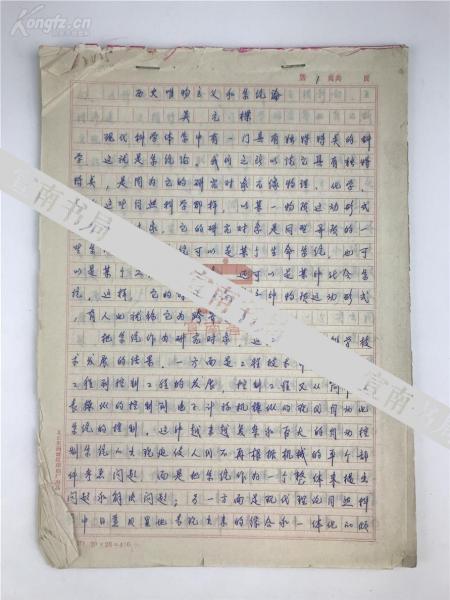 Kongfz.cn
第 1 页共 页
历史唯物主义和系统论
吴元樑
现代科学体系中有一门具有独特特点的科
学，这就是系统论。我们之所以说它具有独特
特点，是因为它的研究对象不像物理、化学、
这些自然科学那样，以某一物质运动形式
为 对象，它的研究对象是同型异质的一
型系 统可以是某个生命系统，也可
以是某个工 还可以是某种社会系
统，这样，它的 种物质运动形式，
有人也就称它为跨
把系统作为研究对象 科学技
术发展的结果。一方面是工程技术
工程到控制工程的发展，控制工程又从
表操纵的控制到电子计算机操纵的
系统的控制，这种越来越复杂和巨大的自动控
制系统的出现迫使人们不再模拟机械的单个部
件考虑问题，而是把系统作为一个整体来提出
问题和解决问题；另一方面是现代理论自然科
学中日益明显地表现出来的综合和一体化的倾
20×20=400
宣南书局